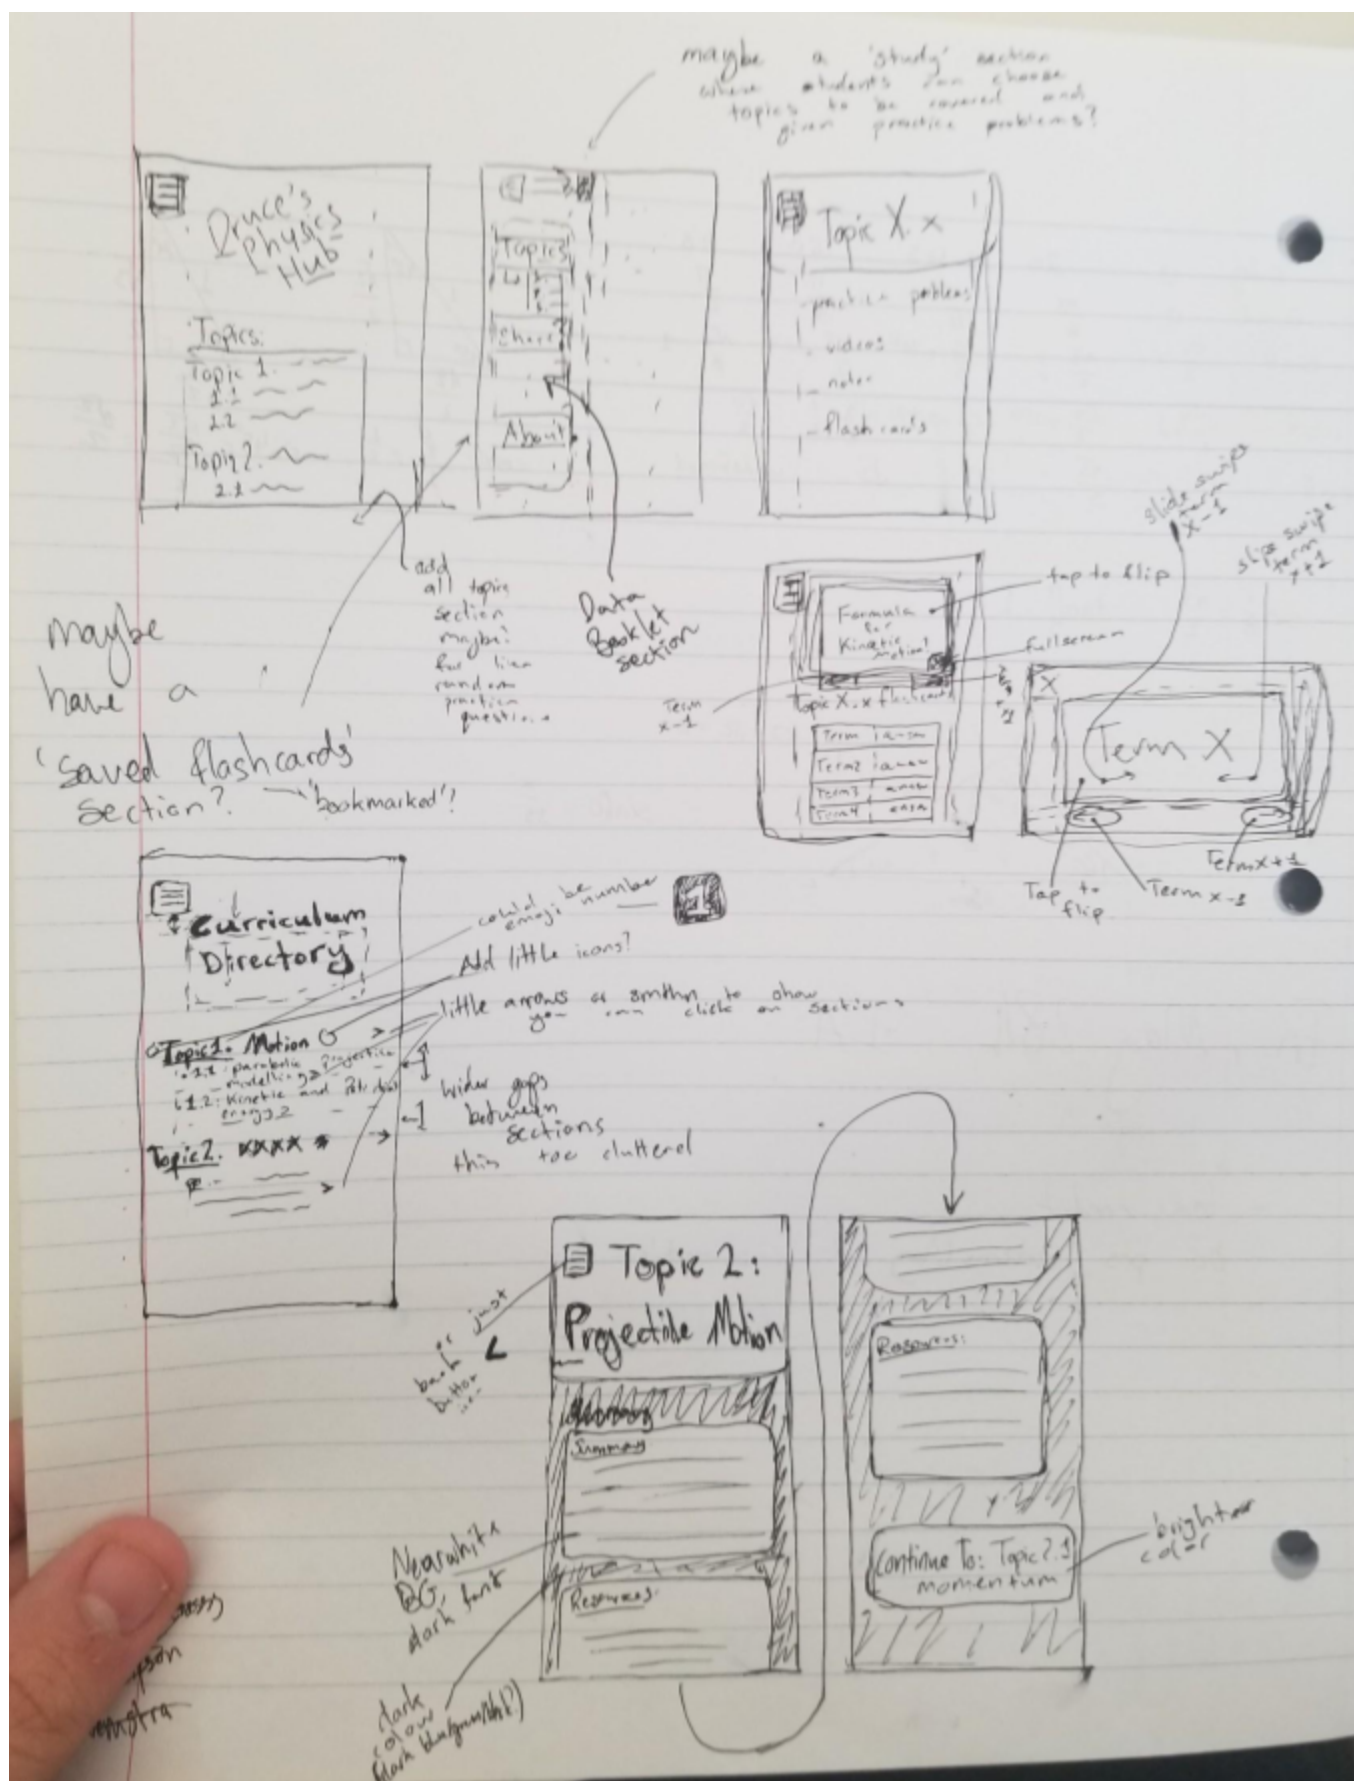 maybe a 'study' section
where students can choose
topics to be covered and
given practice problems?
Druce's
Physics
Hub
Topics:
Topic 1.
1.1
1.2
Topic 2.
2.1
Topics
Share?
About
Topic X.x
- practice problems
- videos
- notes
- flashcards
add
all topics
section
maybe?
for like
random
practice
questions
Data
Booklet
section
maybe
have a
'saved flashcards'
section?
'bookmarked'?
Formula
for
Kinetic
motion?
tap to flip
fullscreen
Term
x-1
Topic X.x flashcards
Term
Term2
Term3
Term4
slide swipe
term
x-1
swipe
term
x+1
X
Term X
Tap to
flip
Term x-1
Term x+1
Curriculum
Directory
could be
emoji number
1
Add little icons?
little arrows or smthn to show
you can click on sections
Topic 1. Motion
1.1: parabolic
modelling
1.2: Kinetic and
energy
Topic 2. xxxx
wider gaps
between
sections
this too cluttered
Topic 2:
Projectile Motion
or just
back
button
Summary
Resources:
Near white
BG,
dark font
dark
colour
Resources:
Continue To: Topic 2.1
momentum
brighter
color